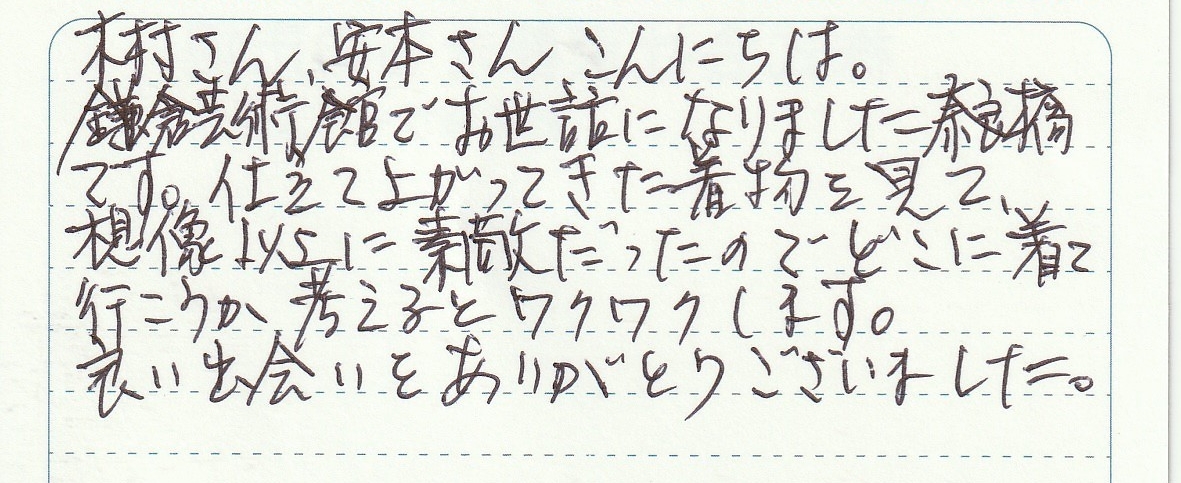 木村さん、安本さん こんにちは。
鎌倉芸術館でお世話になりました奈良橋
です。仕立て上がってきた着物を見て、
想像以上に素敵だったのでどこに着て
行こうか考えるとワクワクします。
良い出会いをありがとうございました。